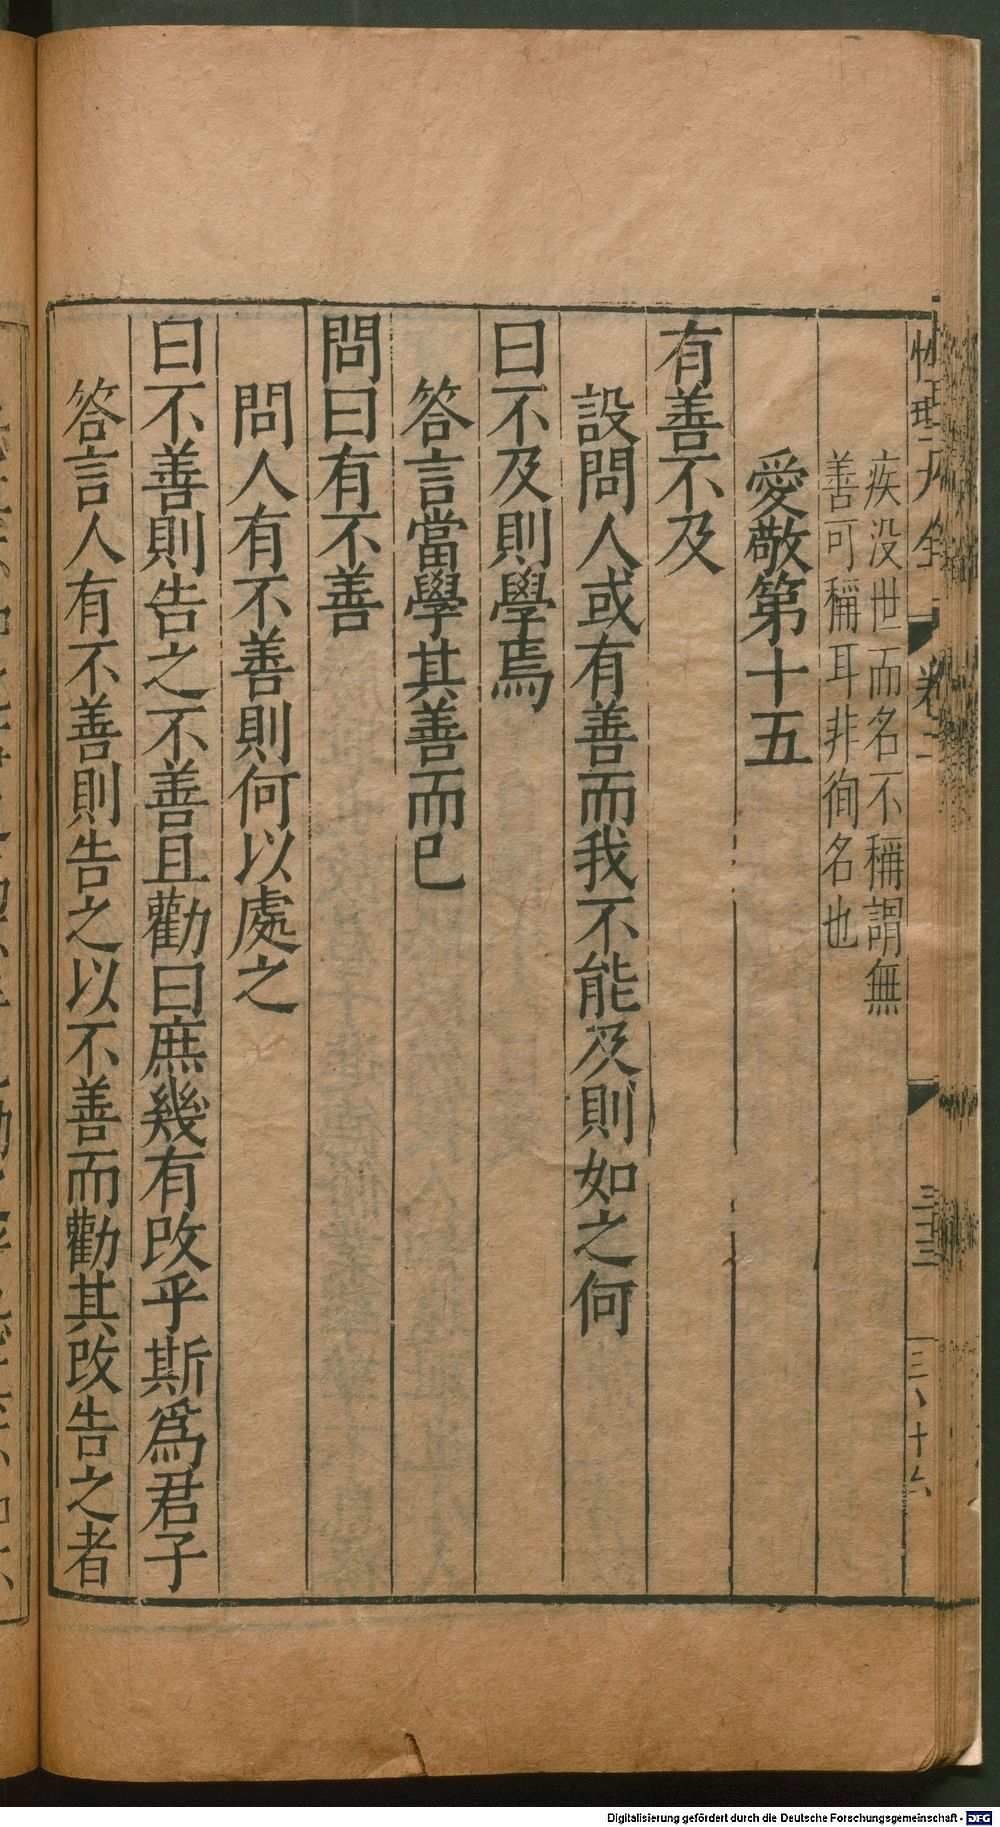 疾没世而名不稱謂無
善可稱耳非徇名也
愛敬第十五
有善不及
設問人或有善而我不能及則如之何
曰不及則學焉
答言當學其善而已
問曰有不善
問人有不善則何以處之
曰不善則告之不善且勸曰庶幾有改乎斯爲君子
答言人有不善則告之以不善而勸其改告之者
卷二
三十三
Digitalisierung gefördert durch die Deutsche Forschungsgemeinschaft - DFG